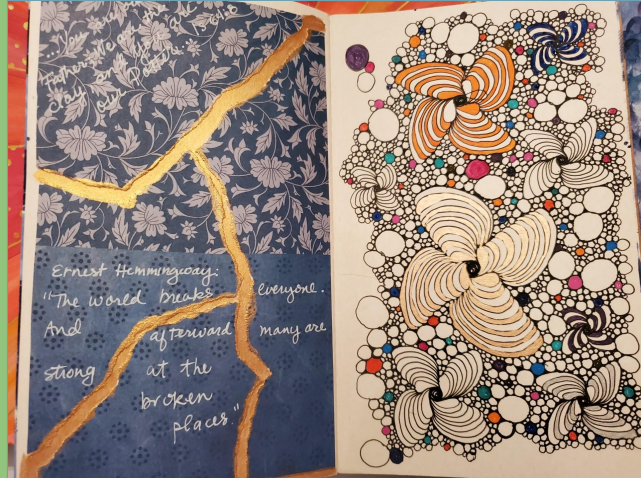 You
Father; We are the
clay, and You are
our Potter.
Ernest Hemmingway:
"The world breaks everyone.
And afterward many are
strong at the
broken
places."